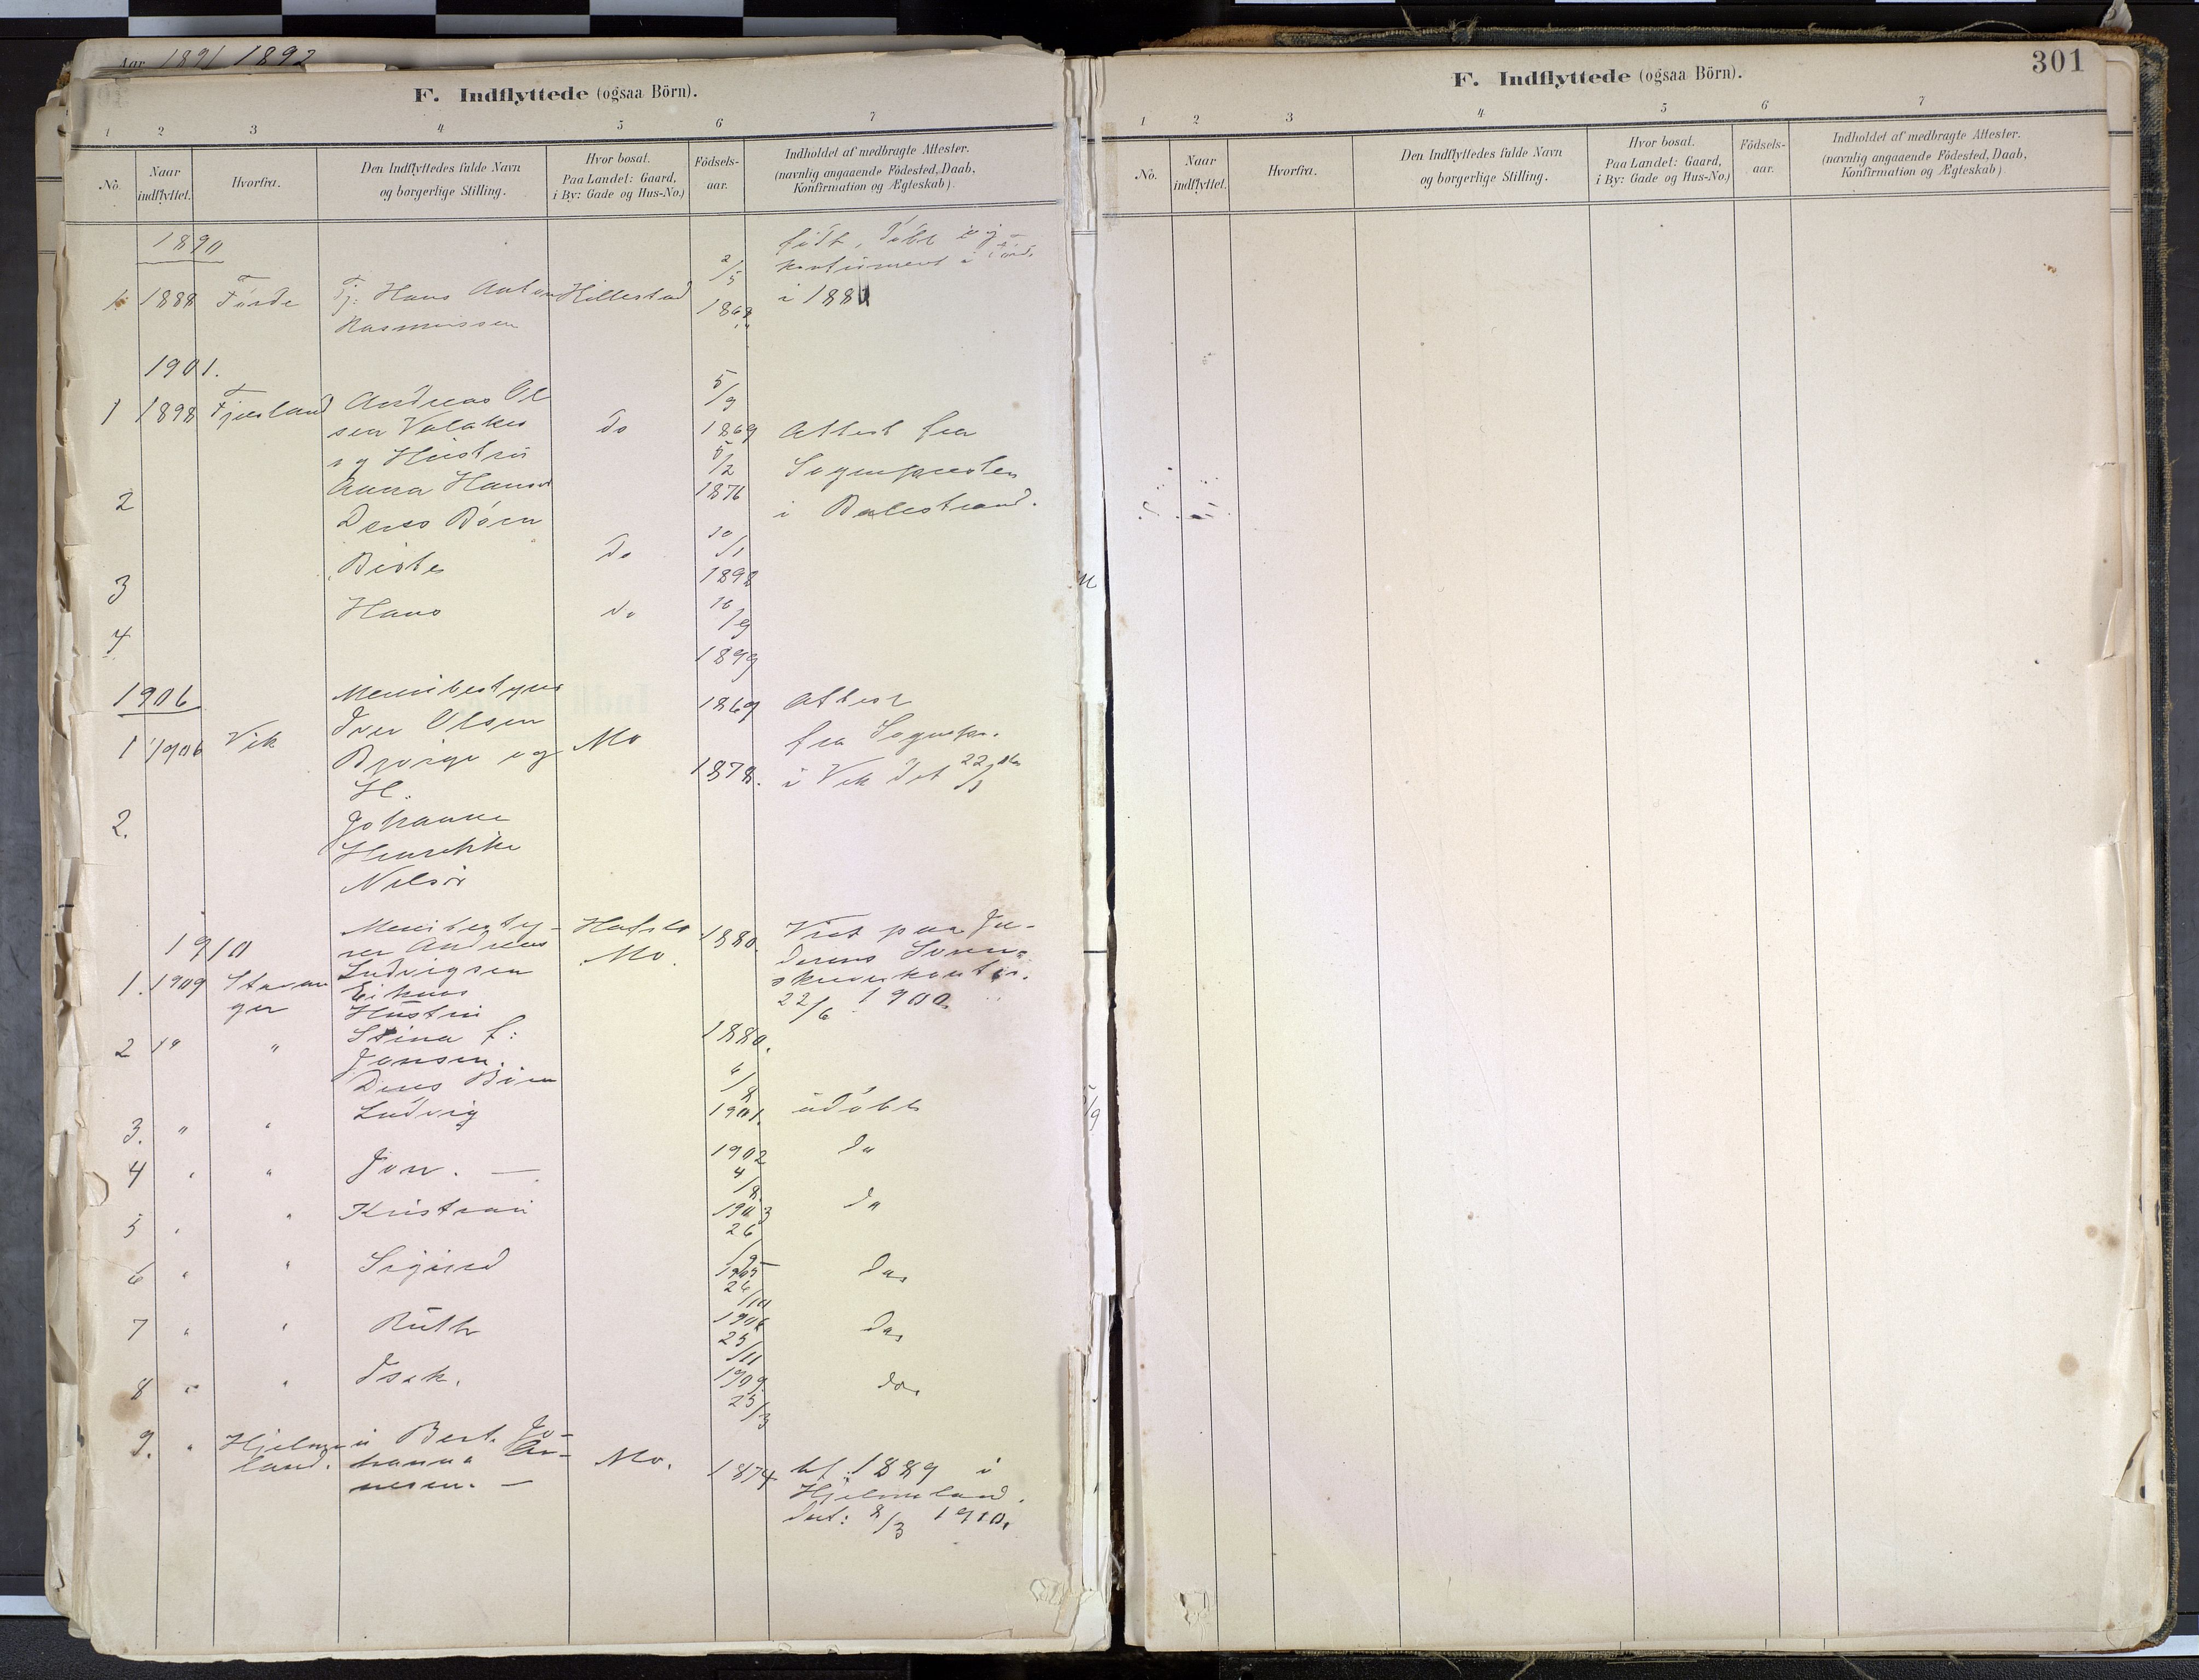 Aar 1891 1892
F. Indflyttede (ogsaa Börn).
1 2 3 4 5 6 7
No. Naar indflyttet. Hvorfra. Den Indflyttedes fulde Navn og borgerlige Stilling. Hvor bosat. Paa Landet: Gaard, i By: Gade og Hus-No.) Födsels-aar. Indholdet af medbragte Attester. (navnlig angaaende Födested, Daab, Konfirmation og Ægteskab).
1890
födt, döbt og
2/5 konfirmeret i Förde
1 1888 Förde Tj: Hans Anton Hillestad 1868 i 188
Rasmussen
1901.
5/9
1 1898 Fjærland Andreas Ol
sen Valaker do 1869 Attest fra
og Hustru 5/2 Sognepresten
2 Anna Hansd 1876 i Balestrand.
Deres Börn 10/1
3 do 1898
4 Hans do 16/9
1899
1906 Menibestyrer 1869 Attest
1 1906 Vik Iver Olsen fra Sognepr.
og Mo 1878. i Vik dat 22/3
H.
2. Johanne
Henrikke
1910 Menibesty- Hafslo 1880. Vist paa
rer Andreas Mo
1. 1909 Stavan Ludvigsen
ger Hustru 22/6 1900.
2 " " Stina f: 1880.
Jansen.
Deres Börn 6/8
3. " " Ludvig 1901. udöbt
4 " " Jon. — 1902 do
4/8
5 " " Kristian 1903 do
26/9
6 " " Sigurd 1905 do
26/10
7 " " Ruth 1906 do
25/11
8 " " Isak. 1909 do
25/3
9. " Hjelme u Bert. Jo-
land. hanna An- Mo. 1874 kf. 1889 i
nesen. — Hjelmeland.
dat: 8/3 1910.
301
F. Indflyttede (ogsaa Börn).
1 2 3 4 5 6 7
No. Naar indflyttet. Hvorfra. Den Indflyttedes fulde Navn og borgerlige Stilling. Hvor bosat. Paa Landet: Gaard, i By: Gade og Hus-No.) Födsels-aar. Indholdet af medbragte Attester. (navnlig angaaende Födested, Daab, Konfirmation og Ægteskab).